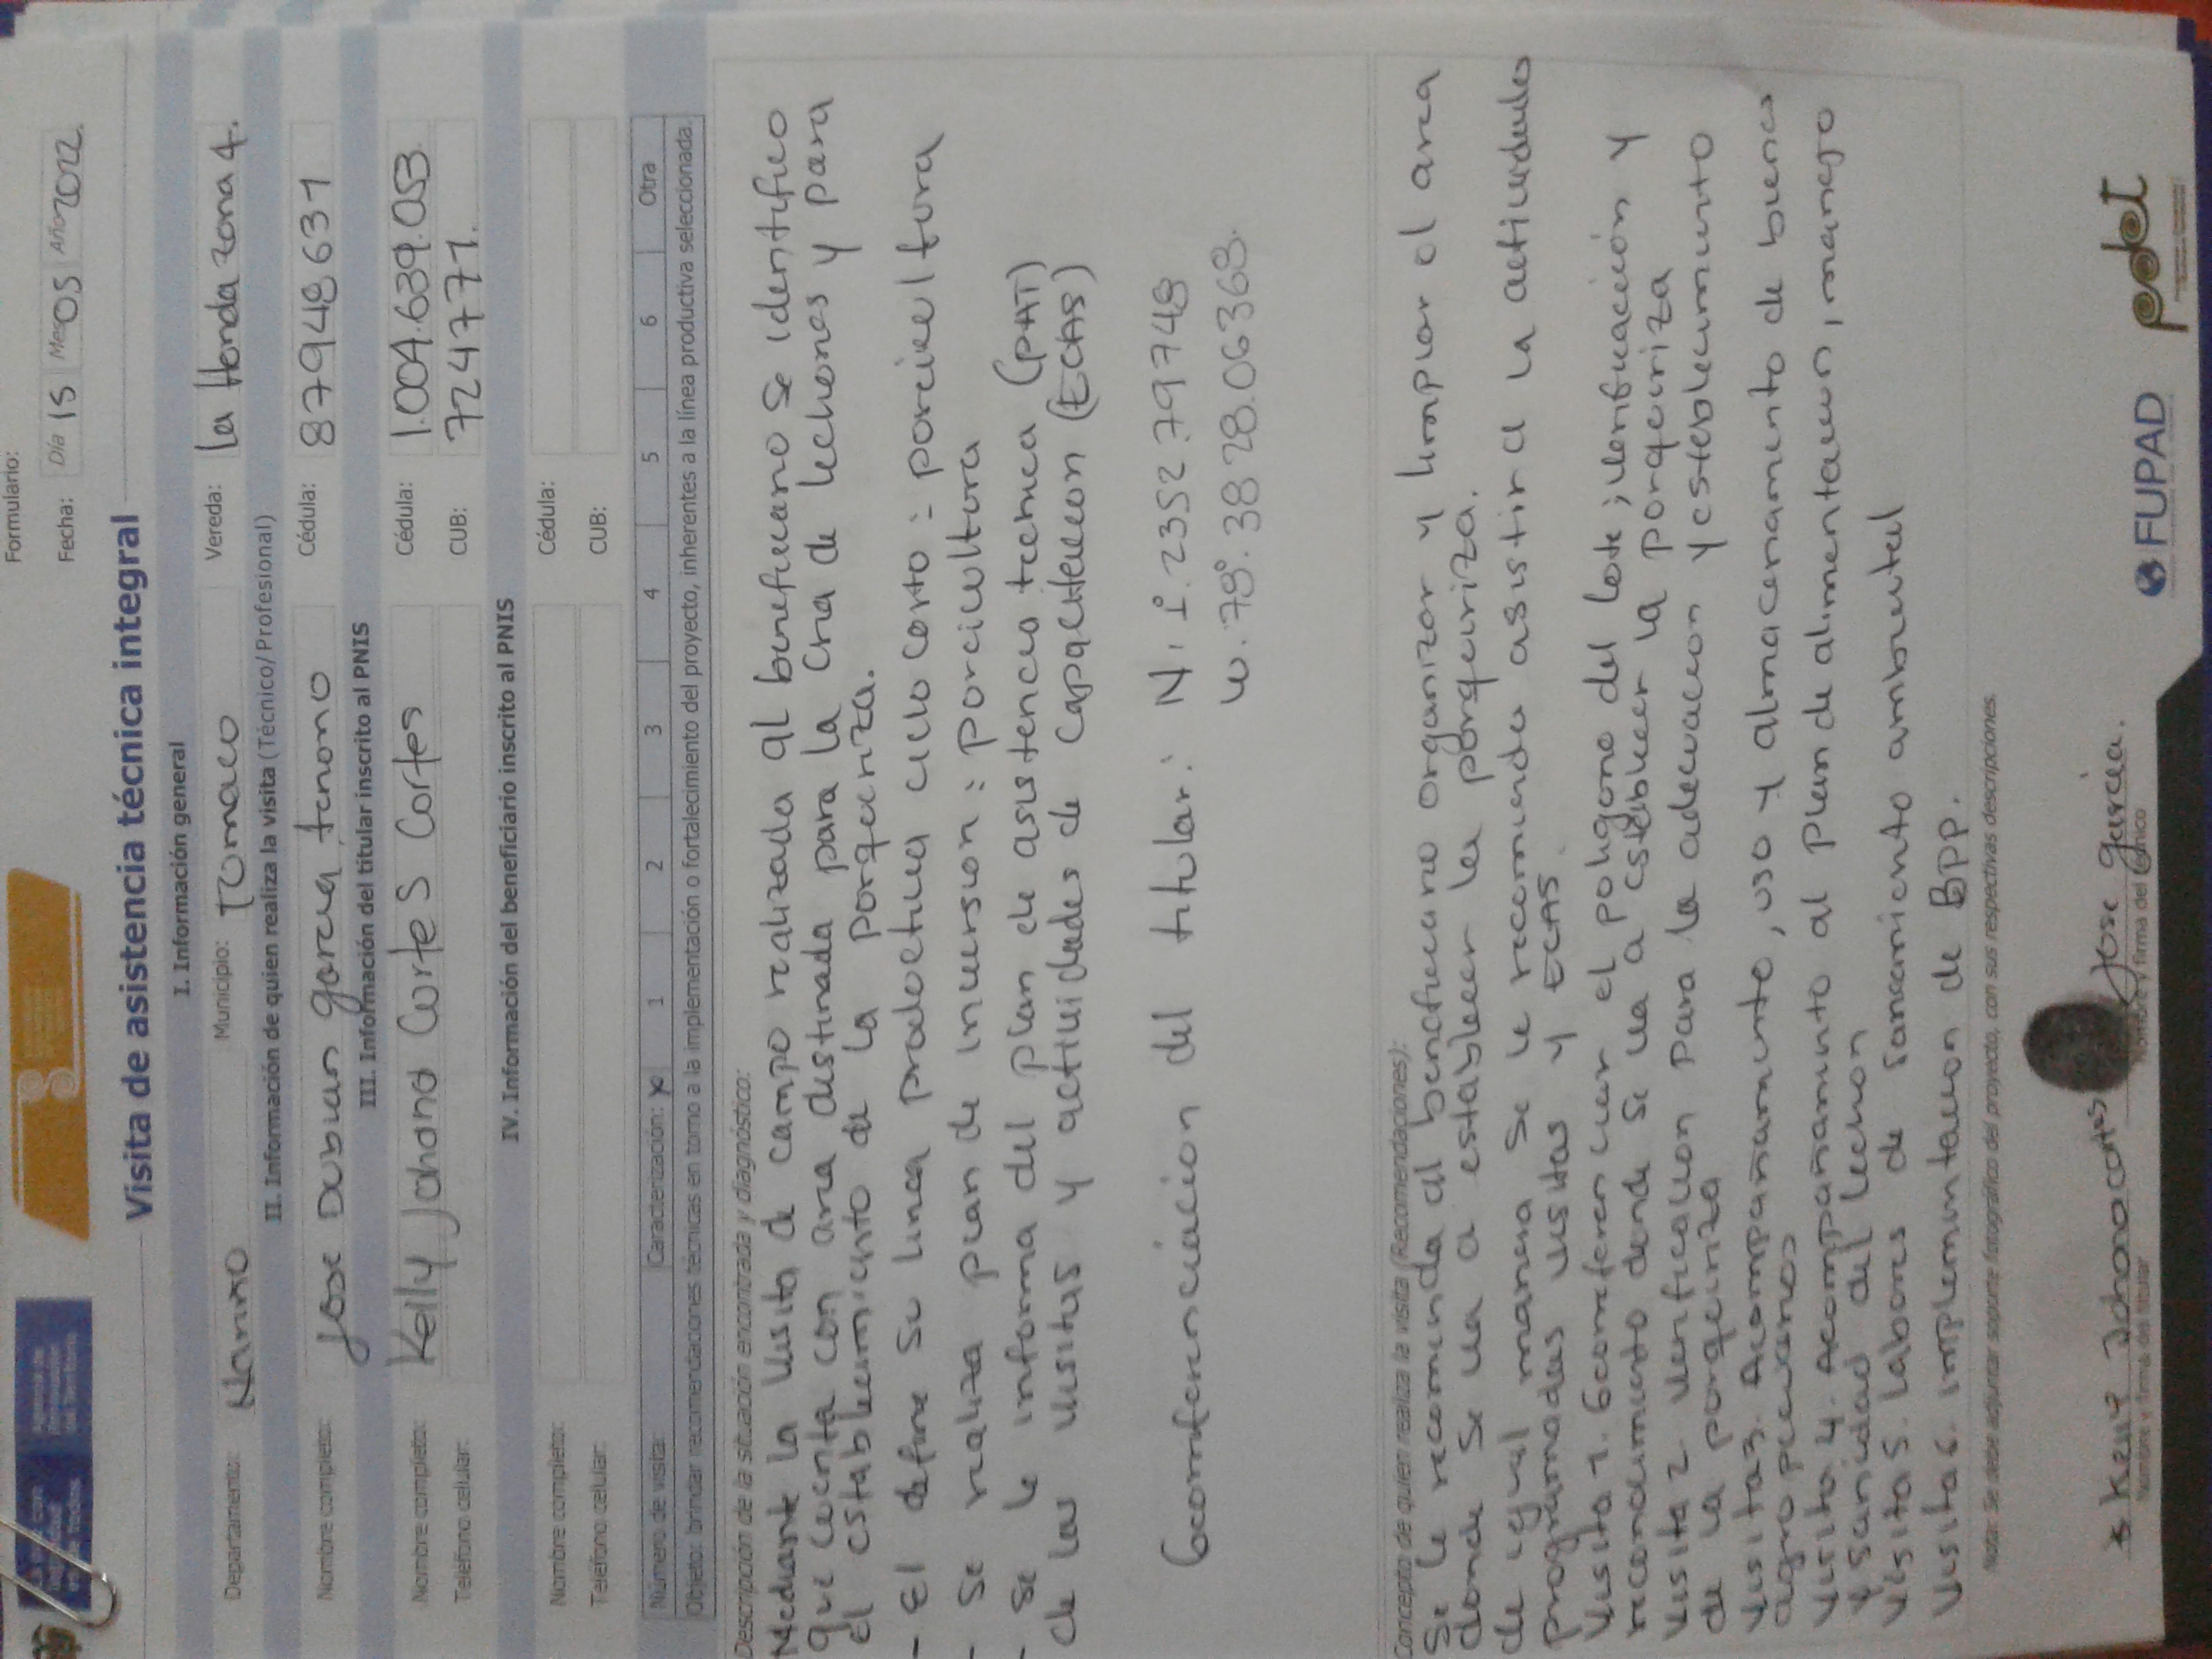 Formulario:
Fecha: Día 15 Mes 05 Año 2022
Visita de asistencia técnica integral
I. Información general
Departamento: Nariño Municipio: Tumaco Vereda: la Honda zona 4.
II. Información de quien realiza la visita (Técnico/Profesional)
Nombre completo: Jose Duban garcia tenorio Cédula: 87948631
III. Información del titular inscrito al PNIS
Nombre completo: Kelly Johana Cortes Cortes Cédula: 1.004.639.053
Teléfono celular: CUB: 724771.
IV. Información del beneficiario inscrito al PNIS
Nombre completo: Cédula:
Teléfono celular: CUB:
Número de visita: Caracterización: x 1 2 3 4 5 6 Otra
Objeto: brindar recomendaciones técnicas en torno a la implementación o fortalecimiento del proyecto, inherentes a la línea productiva seleccionada.
Descripción de la situación encontrada y diagnóstico:
Mediante la visita de campo realizada al beneficiario se identifico
que cuenta con area destinada para la cria de lechones y para
el establecimiento de la porqueriza.
- El define su linea productiva ciclo corto = porcicultura
- Se realiza plan de inversion: porcicultura
- Se le informa del plan de asistencia tecnica (PAT)
de las visitas y actividades de capacitacion (ECAS)
Georreferenciación del titular: N. 1°.2352.79748
W. 78°.3828.06368.
Concepto de quien realiza la visita (Recomendaciones):
Se le recomienda al beneficiario organizar y limpiar el area
donde se va a establecer la porqueriza.
de igual manera se le recomienda asistir a la actividades
programadas visitas y ECAS.
Visita 1. Georreferenciar el poligono del lote; verificación y
reconocimiento donde se va a establecer la porqueriza
Visita 2 verificacion para la adecuacion y establecimiento
de la porqueriza
Visita 3. Acompañamiento, uso y almacenamiento de buenas
agropecuarios
Visita 4. Acompañamiento al plan de alimentacion, manejo
y sanidad del lechon
Visita 5. labores de saneamiento ambiental
Visita 6. implementacion de BPP.
Nota: Se debe adjuntar soporte fotográfico del proyecto, con sus respectivas descripciones.
Kelly Johana Cortes
Jose garcia.
Nombre y firma del titular
Nombre y firma del técnico
FUPAD
pdet